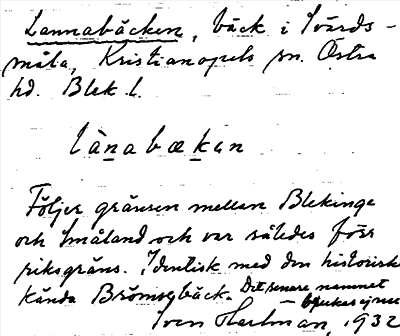 Lannabäcken, bäck i Svärds-
måla, Kristianopels sn. Östra
hd. Blek. l.
lànabækan
Följer gränsen mellan Blekinge
och Småland och var således förr
riksgräns. Identisk med den historiskt
kända Brömsebäck. Det senare namnet
brukas ej nu
Sven Hartman, 1932